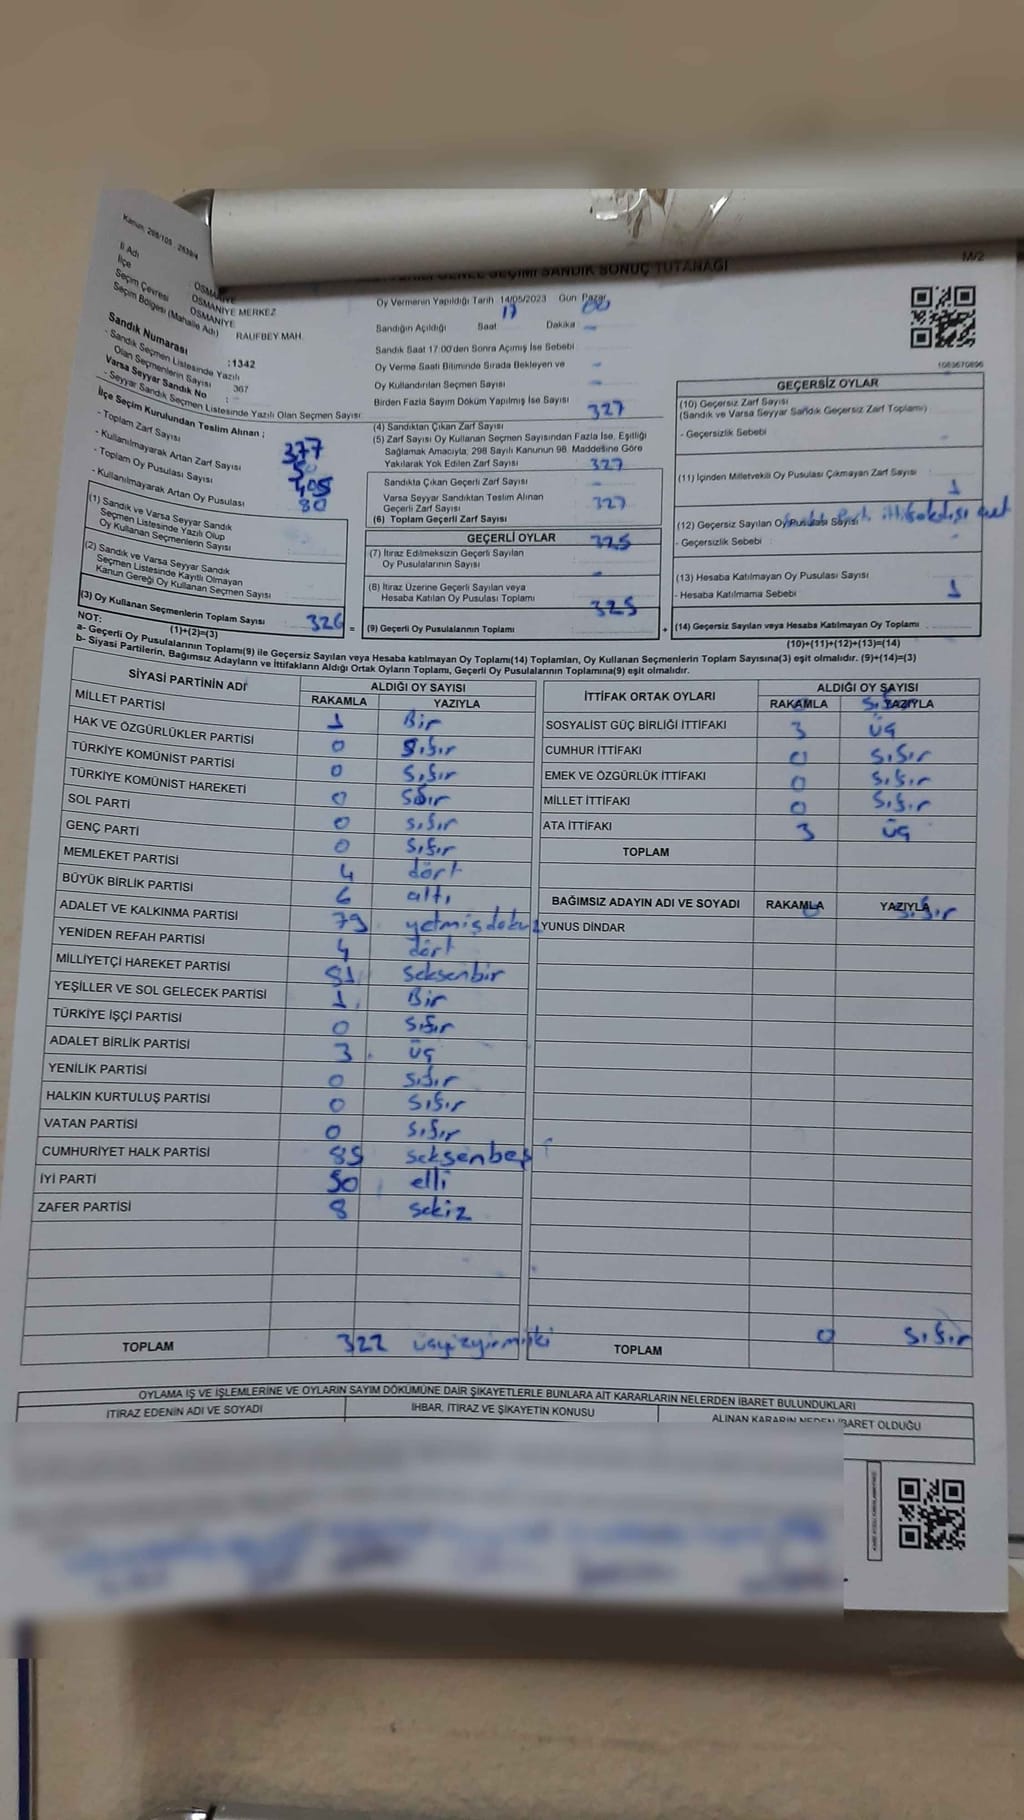 Kanun: 298/105 - 2839/4
GENEL SEÇİMİ SANDIK SONUÇ TUTANAĞI
M/2
İl Adı : OSMANİYE
İlçe : OSMANİYE MERKEZ
Seçim Çevresi : OSMANİYE
Seçim Bölgesi (Mahalle Adı) : RAUFBEY MAH.
Sandık Numarası : 1342
- Sandık Seçmen Listesinde Yazılı
Olan Seçmenlerin Sayısı : 367
Varsa Seyyar Sandık No :
- Seyyar Sandık Seçmen Listesinde Yazılı Olan Seçmen Sayısı :
Oy Vermenin Yapıldığı Tarih 14/05/2023 Gün Pazar
Sandığın Açıldığı Saat 17 Dakika 00
Sandık Saat 17:00'den Sonra Açımış İse Sebebi -
Oy Verme Saati Bitiminde Sırada Bekleyen ve
Oy Kullandırılan Seçmen Sayısı -
Birden Fazla Sayım Döküm Yapılmış İse Sayısı -
1083670896
İlçe Seçim Kurulundan Teslim Alınan ;
- Toplam Zarf Sayısı 377
- Kullanılmayarak Artan Zarf Sayısı
- Toplam Oy Pusulası Sayısı 405
- Kullanılmayarak Artan Oy Pusulası 80
(1) Sandık ve Varsa Seyyar Sandık
Seçmen Listesinde Yazılı Olup
Oy Kullanan Seçmenlerin Sayısı
(2) Sandık ve Varsa Seyyar Sandık
Seçmen Listesinde Kayıtlı Olmayan
Kanun Gereği Oy Kullanan Seçmen Sayısı
(3) Oy Kullanan Seçmenlerin Toplam Sayısı 326 =
(1)+(2)=(3)
(4) Sandıktan Çıkan Zarf Sayısı 327
(5) Zarf Sayısı Oy Kullanan Seçmen Sayısından Fazla İse, Eşitliği
Sağlamak Amacıyla; 298 Sayılı Kanunun 98. Maddesine Göre
Yakılarak Yok Edilen Zarf Sayısı
Sandıkta Çıkan Geçerli Zarf Sayısı 327
Varsa Seyyar Sandıktan Teslim Alınan
Geçerli Zarf Sayısı -
(6) Toplam Geçerli Zarf Sayısı 327
GEÇERLİ OYLAR
(7) İtiraz Edilmeksizin Geçerli Sayılan
Oy Pusulalarının Sayısı 325
(8) İtiraz Üzerine Geçerli Sayılan veya
Hesaba Katılan Oy Pusulası Toplamı -
(9) Geçerli Oy Pusulalarının Toplamı 325 +
GEÇERSİZ OYLAR
(10) Geçersiz Zarf Sayısı
(Sandık ve Varsa Seyyar Sandık Geçersiz Zarf Toplamı)
- Geçersizlik Sebebi -
(11) İçinden Milletvekili Oy Pusulası Çıkmayan Zarf Sayısı -
(12) Geçersiz Sayılan Oy Pusulası Sayısı 1
- Geçersizlik Sebebi :
(13) Hesaba Katılmayan Oy Pusulası Sayısı -
- Hesaba Katılmama Sebebi
(14) Geçersiz Sayılan veya Hesaba Katılmayan Oy Toplamı 1
(10)+(11)+(12)+(13)=(14)
NOT:
a- Geçerli Oy Pusulalarının Toplamı(9) ile Geçersiz Sayılan veya Hesaba katılmayan Oy Toplamı(14) Toplamları, Oy Kullanan Seçmenlerin Toplam Sayısına(3) eşit olmalıdır. (9)+(14)=(3)
b- Siyasi Partilerin, Bağımsız Adayların ve İttifakların Aldığı Ortak Oyların Toplamı, Geçerli Oy Pusulalarının Toplamına(9) eşit olmalıdır.
SİYASİ PARTİNİN ADI ALDIĞI OY SAYISI
RAKAMLA YAZIYLA
MİLLET PARTİSİ 1 Bir
HAK VE ÖZGÜRLÜKLER PARTİSİ 0 sıfır
TÜRKİYE KOMÜNİST PARTİSİ 0 sıfır
TÜRKİYE KOMÜNİST HAREKETİ 0 sıfır
SOL PARTİ 0 sıfır
GENÇ PARTİ 0 sıfır
MEMLEKET PARTİSİ 4 dört
BÜYÜK BİRLİK PARTİSİ 6 altı
ADALET VE KALKINMA PARTİSİ 79 yetmişdokuz
YENİDEN REFAH PARTİSİ 4 dört
MİLLİYETÇİ HAREKET PARTİSİ 81 seksenbir
YEŞİLLER VE SOL GELECEK PARTİSİ 1 Bir
TÜRKİYE İŞÇİ PARTİSİ 0 sıfır
ADALET BİRLİK PARTİSİ 3 üç
YENİLİK PARTİSİ 0 sıfır
HALKIN KURTULUŞ PARTİSİ 0 sıfır
VATAN PARTİSİ 0 sıfır
CUMHURİYET HALK PARTİSİ 85 seksenbeş
İYİ PARTİ 50 elli
ZAFER PARTİSİ 8 sekiz
TOPLAM 322 üçyüzyirmiiki
İTTİFAK ORTAK OYLARI ALDIĞI OY SAYISI
RAKAMLA YAZIYLA
SOSYALİST GÜÇ BİRLİĞİ İTTİFAKI 0 sıfır
CUMHUR İTTİFAKI 3 üç
EMEK VE ÖZGÜRLÜK İTTİFAKI 0 sıfır
MİLLET İTTİFAKI 0 sıfır
ATA İTTİFAKI 0 sıfır
TOPLAM 3 üç
BAĞIMSIZ ADAYIN ADI VE SOYADI RAKAMLA YAZIYLA
YUNUS DİNDAR 0 sıfır
TOPLAM 0 sıfır
OYLAMA İŞ VE İŞLEMLERİNE VE OYLARIN SAYIM DÖKÜMÜNE DAİR ŞİKAYETLERLE BUNLARA AİT KARARLARIN NELERDEN İBARET BULUNDUKLARI
İTİRAZ EDENİN ADI VE SOYADI
İHBAR, İTİRAZ VE ŞİKAYETİN KONUSU
ALINAN KARARIN NEDEN İBARET OLDUĞU